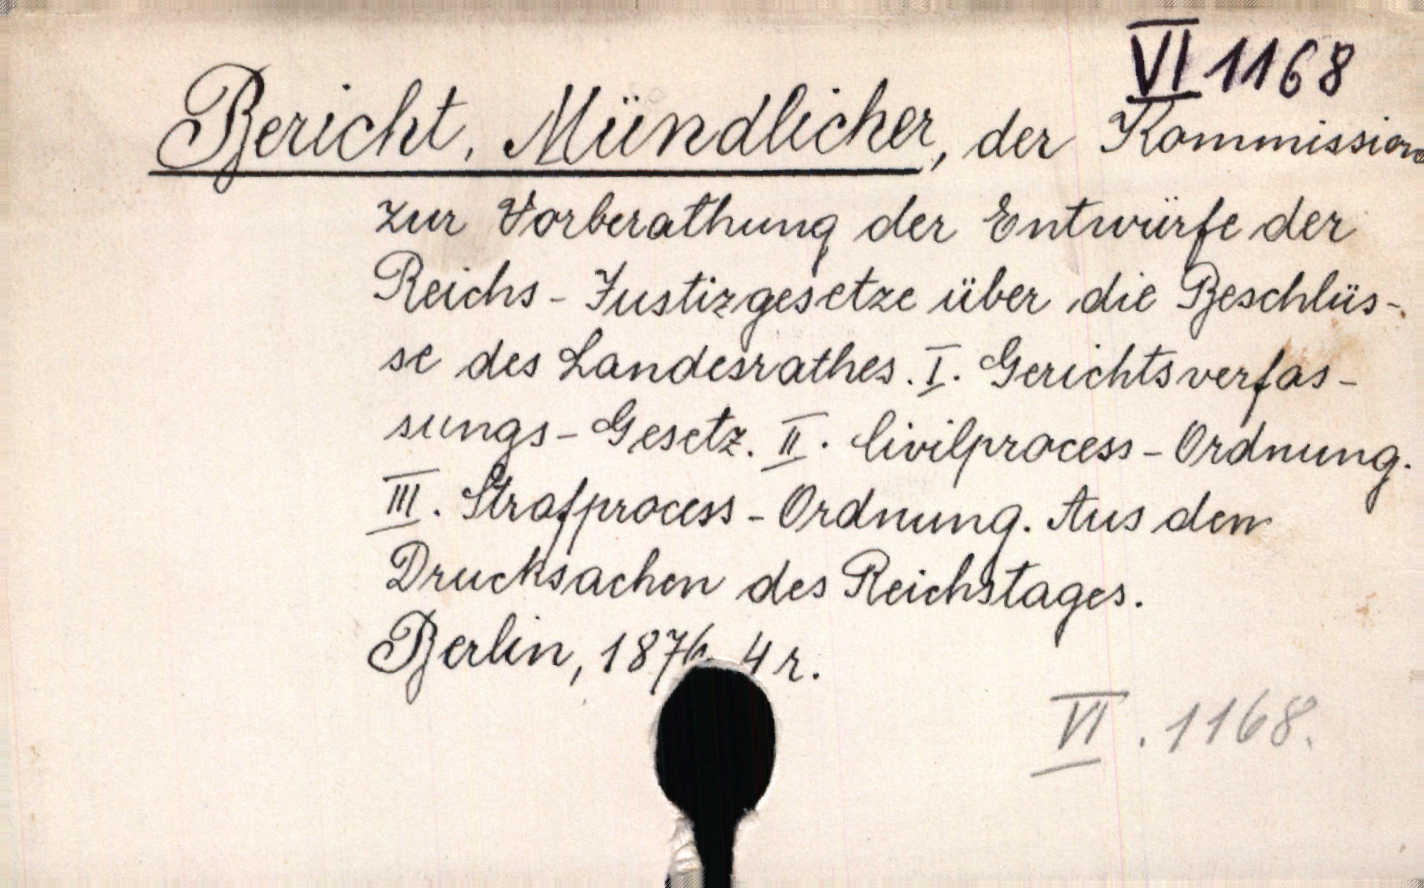 VI 1168
Bericht, Mündlicher, der Kommission
zur Vorberathung der Entwürfe der
Reichs-Justizgesetze über die Beschlüs-
se des Landesrathes. I. Gerichtsverfas-
sungs-Gesetz. II. Civilprocess-Ordnung.
III. Strafprocess-Ordnung. Aus den
Drucksachen des Reichstages.
Berlin, 1876. 4 r.
VI. 1168.